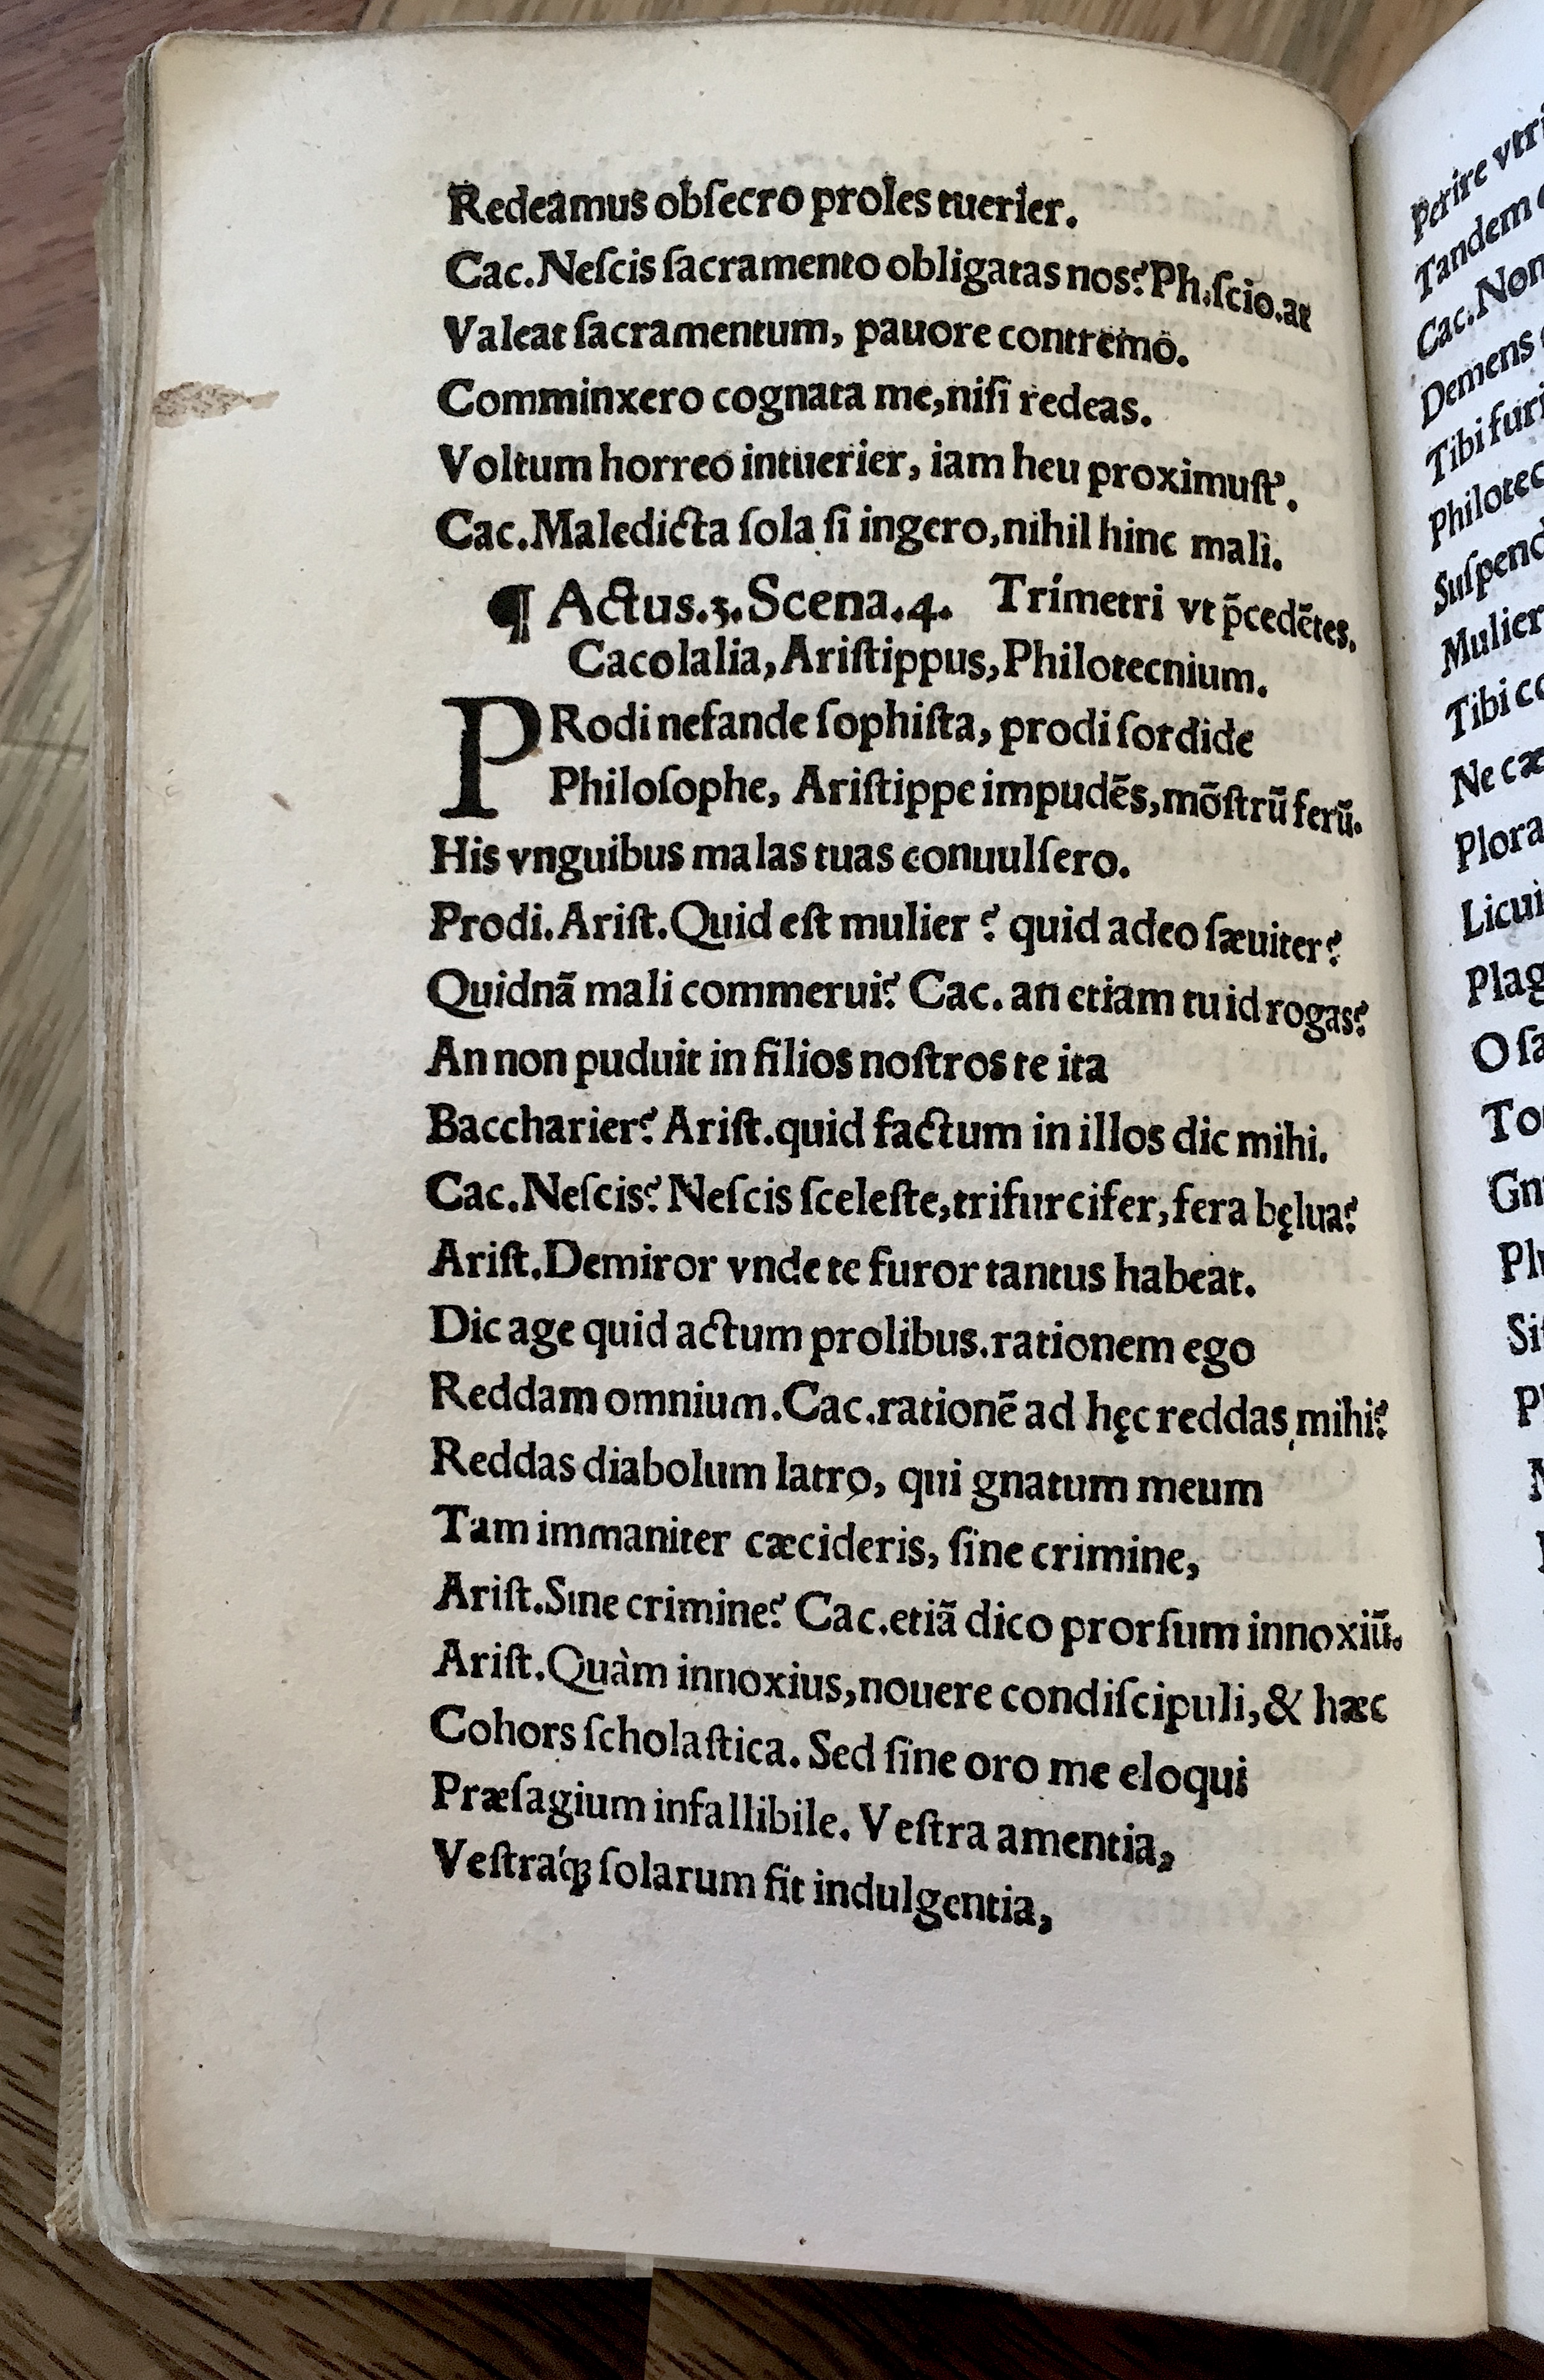 Redeamus obſecro proles tuerier.
Cac.Neſcis ſacramento obligatas nos? Ph.ſcio.at
Valeat ſacramentum, pauore contremo.
Comminxero cognata me,niſi redeas.
Voltum horreo intuerier, iam heu proximuſt'.
Cac.Maledicta ſola ſi ingero,nihil hinc mali.
¶ Actus.3.Scena.4. Trimetri vt p̄cedẽtes.
Cacolalia,Ariſtippus,Philotecnium.
PRodi nefande ſophiſta, prodi ſordide
Philoſophe, Ariſtippe impudẽs,mõſtrũ ferũ.
His vnguibus malas tuas conuulſero.
Prodi.Ariſt.Quid eſt mulier ? quid adeo ſæuiter?
Quidnã mali commerui? Cac. an etiam tu id rogas?
An non puduit in filios noſtros te ita
Baccharier? Ariſt.quid factum in illos dic mihi.
Cac.Neſcis? Neſcis ſceleſte,trifurcifer,fera bęlua?
Ariſt.Demiror vnde te furor tantus habeat.
Dic age quid actum prolibus.rationem ego
Reddam omnium.Cac.rationẽ ad hęc reddas mihi?
Reddas diabolum latro, qui gnatum meum
Tam immaniter cæcideris, ſine crimine,
Ariſt.Sine crimine? Cac.etiã dico prorſum innoxiũ.
Ariſt.Quàm innoxius,nouere condiſcipuli,& hæc
Cohors ſcholaſtica. Sed ſine oro me eloqui
Præſagium infallibile. Veſtra amentia,
Veſtraq́ꝫ ſolarum fit indulgentia,
Perire
Tandem
Cac.Non
Demens
Tibi furi
Mulier
Ne
Plora